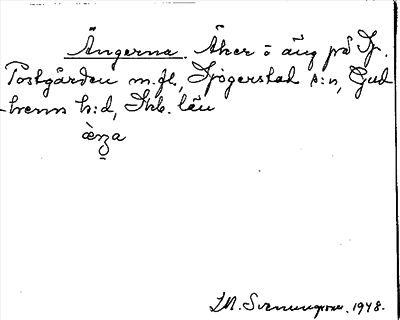 Ängerna. Åker o äng på Sj.
Postgården m.fl., Sjogerstad s:n, Gud
hems h:d, Skb. län
I.M. Svennungsson. 1948.